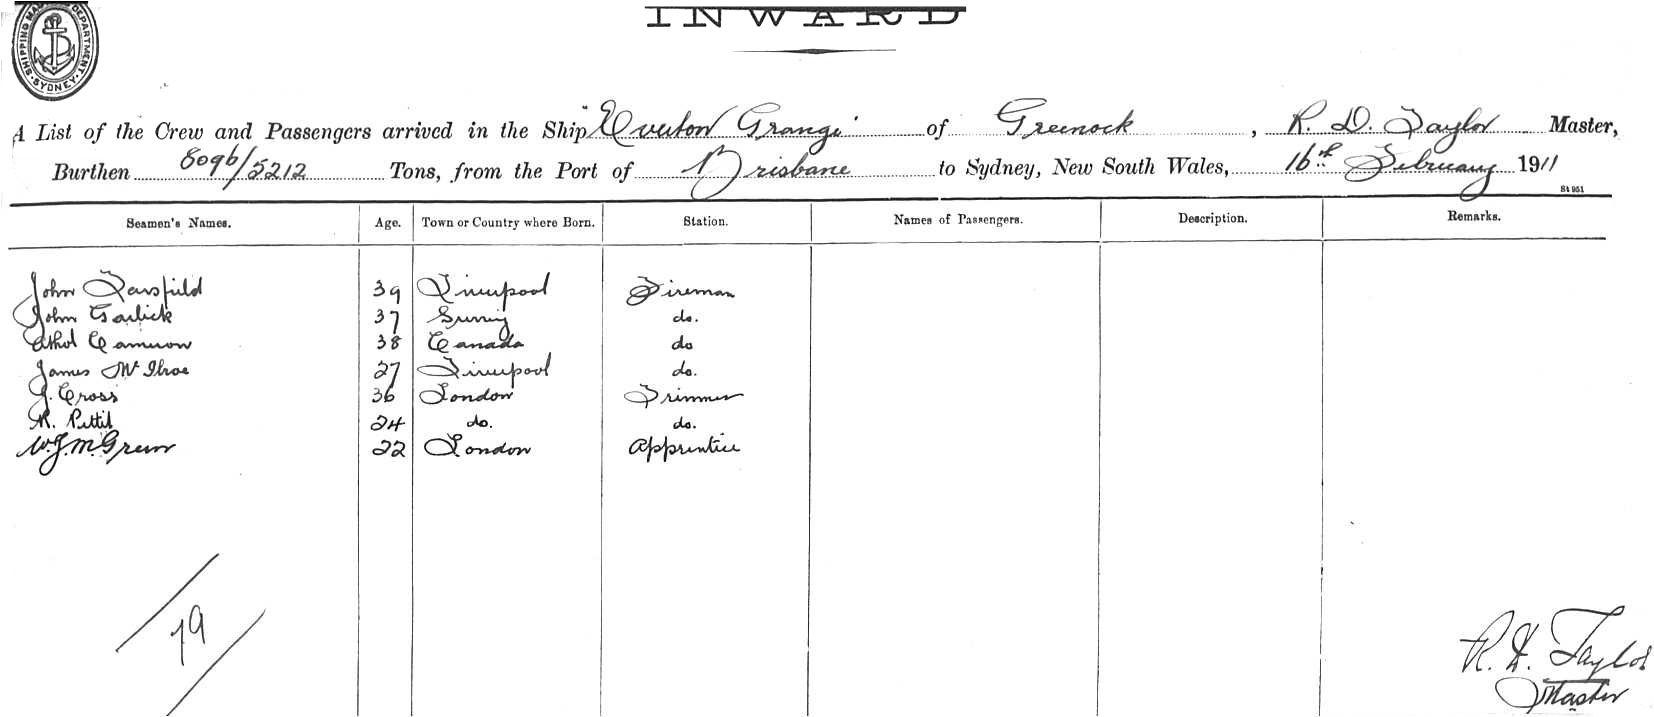 SHIPPING MASTER DEPARTMENT. SYDNEY.
INWARD
A List of the Crew and Passengers arrived in the Ship "Everton Grange" of Greenock, R. D. Taylor Master,
Burthen 8096/5212 Tons, from the Port of Brisbane to Sydney, New South Wales, 16th February 1911
St 951
Seamen's Names. Age. Town or Country where Born. Station. Names of Passengers. Description. Remarks.
John 39 Liverpool Fireman
John Garlick 37 Surrey do.
Athol Cameron 38 Canada do
James 27 Liverpool do.
J. Cross 36 London Trimmer
R. Pettit 24 do. do.
W. J. M. Green 22 London Apprentice
79
R. D. Taylor
Master